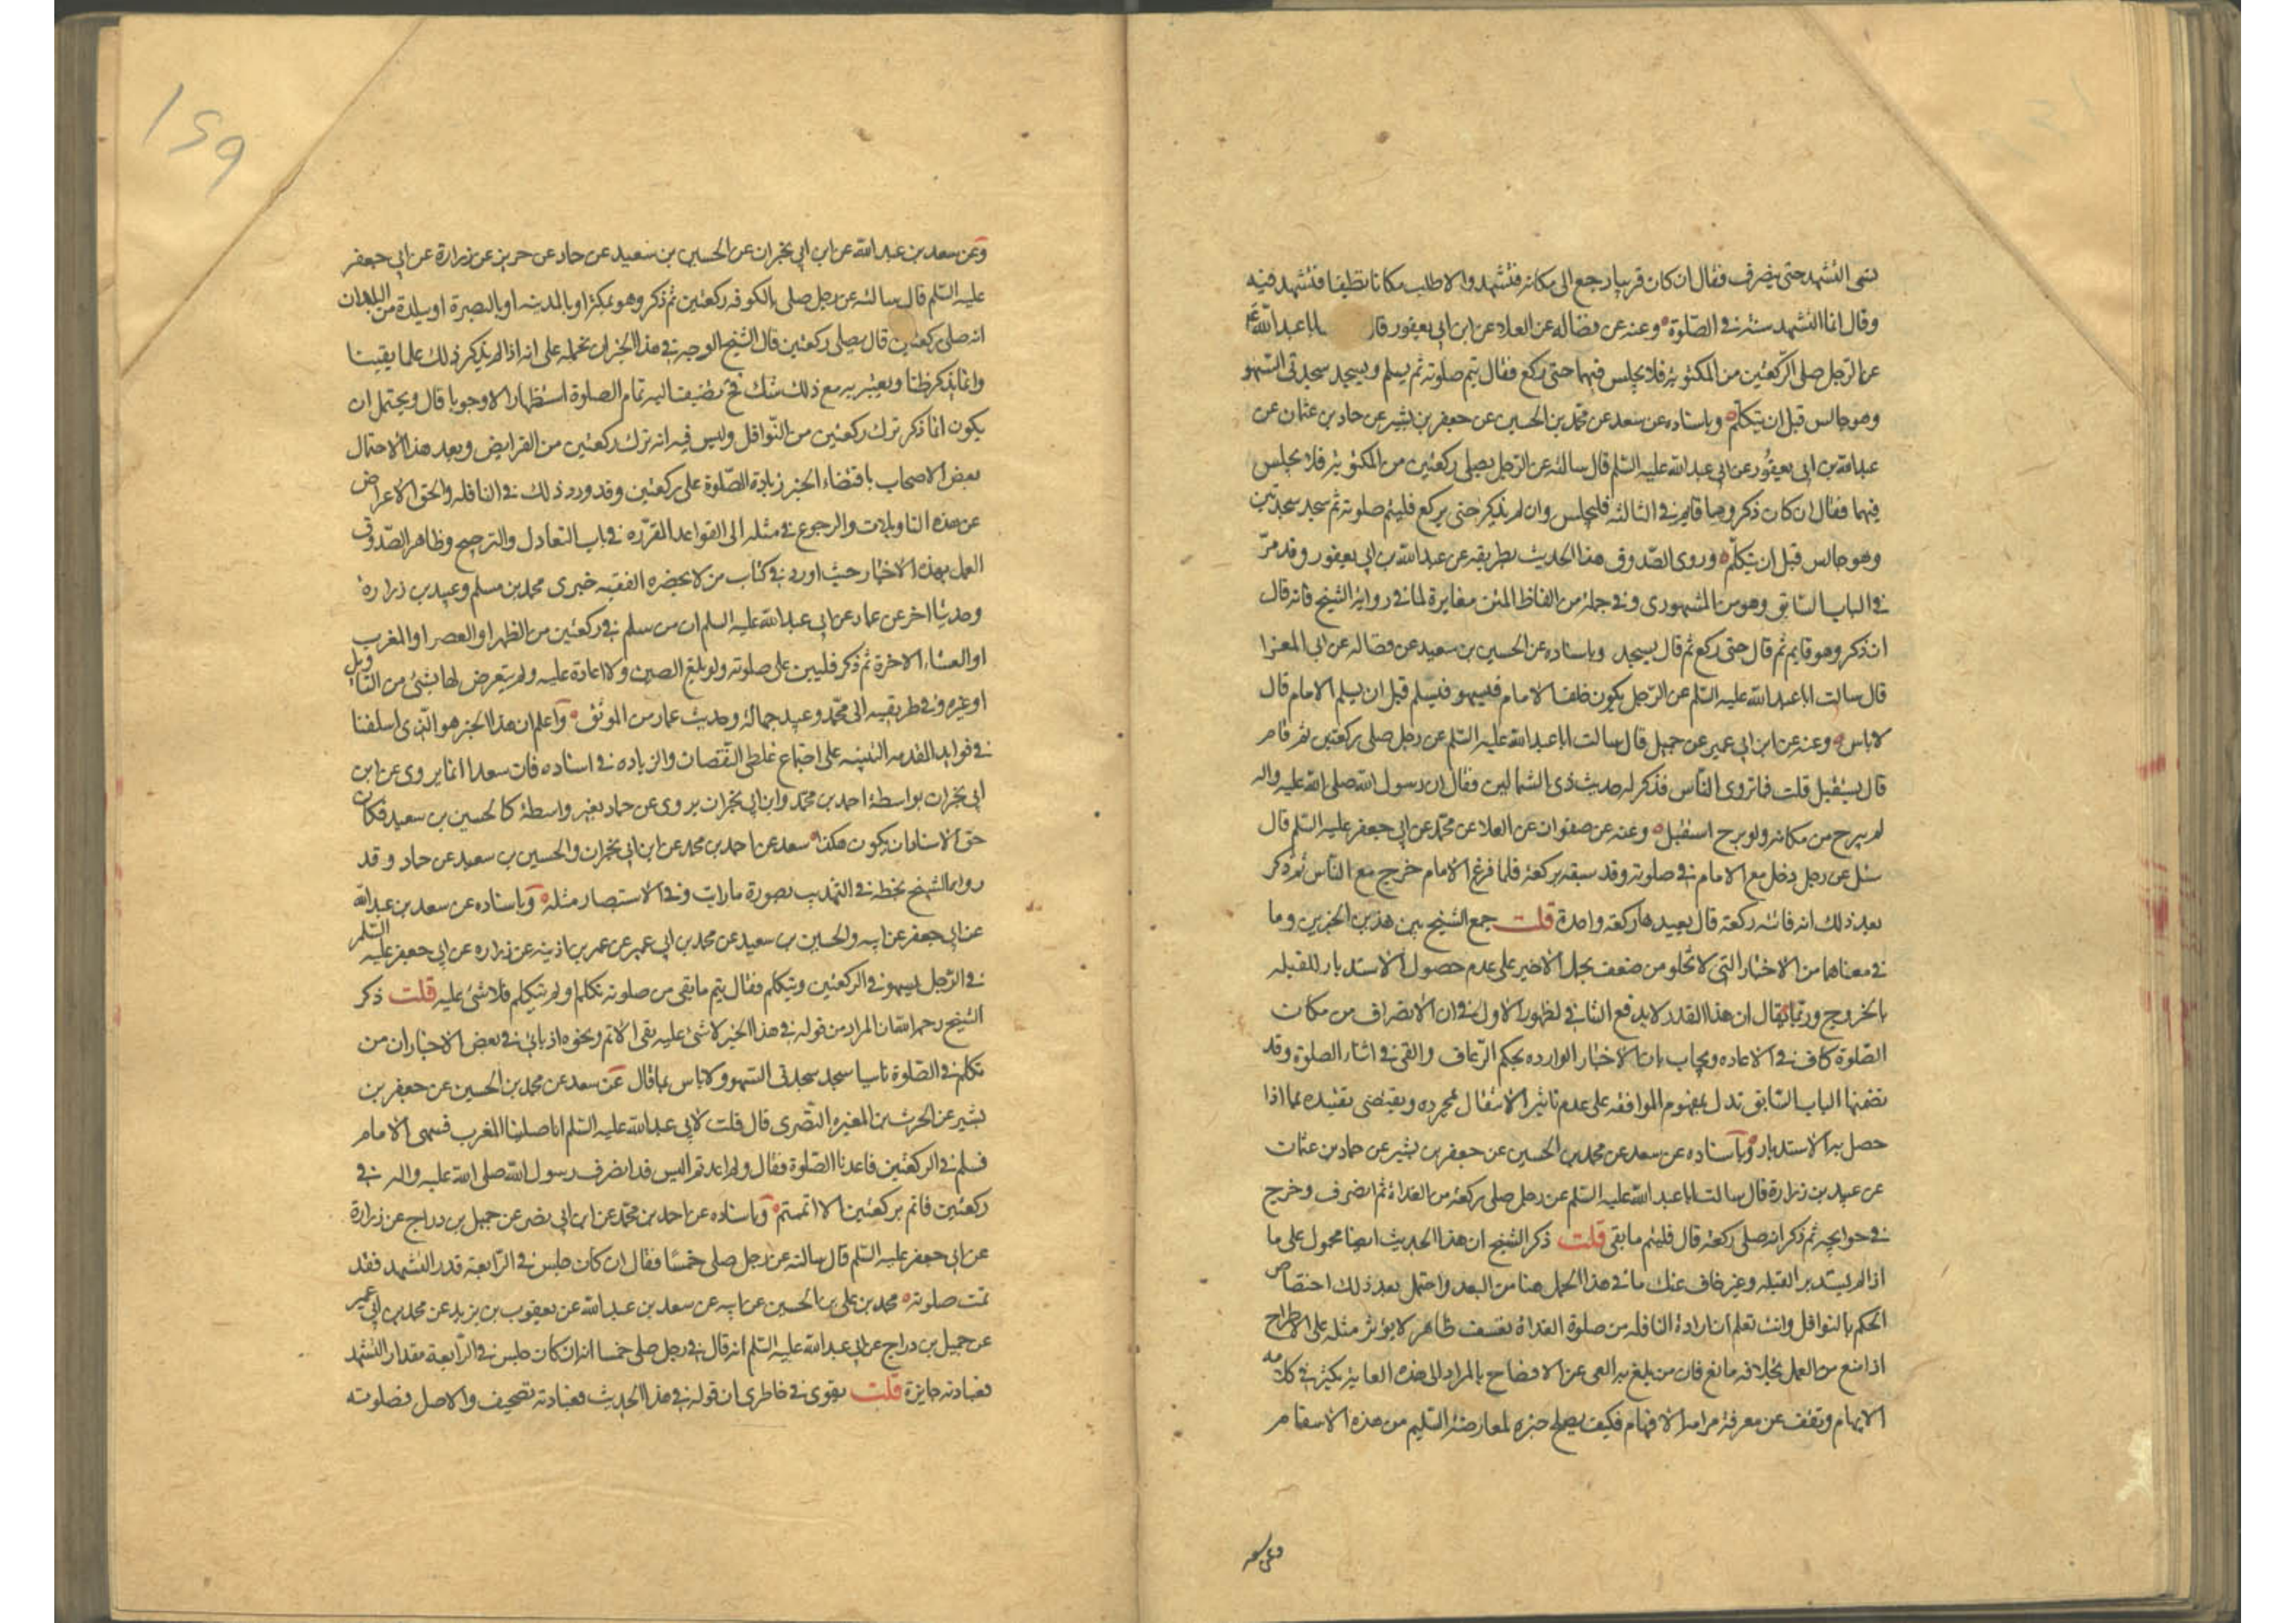 نسى التشهد حتى ينصرف فقال ان كان قريبا رجع الى مكانه فتشهد والا طلب مكانا نظيفا فتشهد فيه
وقال انما التشهد سنة في الصلوة وعنه عن فضاله عن العلا عن ابن ابي يعفور قال ابا عبد الله ع
عن الرجل صلى الركعتين من المكتوبة فلا يجلس فيهما حتى ركع فقال يتم صلوته ثم يسلم ويسجد سجدتي السهو
وهو جالس قبل ان يتكلم وباسناده عن سعد عن محمد بن الحسين عن جعفر بن بشير عن حماد بن عثمان عن
عبد الله بن ابي يعفور عن ابي عبد الله عليه السلم قال سالته عن الرجل يصلي ركعتين من المكتوبة فلا يجلس
فيهما فقال ان كان ذكر وهو قايم في الثالثه فليجلس وان لم يذكر حتى يركع فليتم صلوته ثم سجد سجدتين
وهو جالس قبل ان يتكلم وروى الصدوق هذا الحديث بطريقه عن عبد الله بن ابي يعفور وقد مر
في الباب السابق وهو من المشهوري وفي جملة من الفاظ المتن مغايرة لما في رواية الشيخ فانه قال
ان ذكر وهو قايم ثم قال حتى ركع ثم قال يسجد وباسناده عن الحسين بن سعيد عن فضاله عن ابي المعزا
قال سالت ابا عبد الله عليه السلم عن الرجل يكون خلف الامام فيسهو فيسلم قبل ان يسلم الامام قال
لا باس وعنه عن ابن ابي عمير عن جميل قال سالت ابا عبد الله عليه السلم عن رجل صلى ركعتين ثم قام
قال يستقبل قلت فما تروى الناس فذكر له حديث ذي الشمالين فقال ان رسول الله صلى الله عليه واله
لم يبرح من مكانه ولو برح استقبل وعنه عن صفوان عن العلا عن محمد عن ابي جعفر عليه السلم قال
سئل عن رجل دخل مع الامام في صلوته وقد سبقه بركعة فلما فرغ الامام خرج مع الناس ثم ذكر
بعد ذلك انه فاتته ركعة قال يعيدها ركعة واحدة قلت جمع الشيخ بين هذين الخبرين وما
في معناهما من الاخبار التي لا تخلو من ضعف بحمل الاخير على عدم حصول الاستدبار للقبله
بالخروج وربما يقال ان هذا القدر لا يدفع التنافي لظهور الاول في ان الانصراف من مكان
الصلوة كاف في الاعاده ويجاب بان الاخبار الوارده بحكم الرعاف والقي في اثناء الصلوة وقد
تضمنها الباب السابق تدل بمفهوم الموافقه على عدم تاثير الانتقال بمجرده ويقتضى تقييده بما اذا
حصل به الاستدبار وباسناده عن سعد عن محمد بن الحسين عن جعفر بن بشير عن حماد بن عثمان
عن عبيد بن زرارة قال سالت ابا عبد الله عليه السلم عن رجل صلى ركعة من الغداة ثم انصرف وخرج
في حوايجه ثم ذكر انه صلى ركعة قال فليتم ما بقى قلت ذكر الشيخ ان هذا الحديث ايضا محمول على ما
اذا لم يستدبر القبله وغير خاف عنك ما في هذا الحمل هنا من البعد واحتمل بعد ذلك اختصاص
الحكم بالنوافل وانت تعلم ان ارادة النافله من صلوة الغداة تعسف ظاهر لا يؤثر مثله على الاطراح
اذا منع من العمل بخلافه مانع فان من يبلغ به العي عن الافصاح بالمراد الى هذه الغاية يكثر في كلامه
الابهام وتقف عن معرفة مرامه الافهام فكيف يصلح خبره لمعارضة السليم من هذه الاسقام
وعن سعد
وعن سعد بن عبد الله عن ابن ابي نجران عن الحسين بن سعيد عن حماد عن حريز عن زرارة عن ابي جعفر
عليه السلم قال سالته عن رجل صلى بالكوفه ركعتين ثم ذكر وهو بمكة او بالمدينه او بالبصرة او ببلدة من البلدان
انه صلى ركعتين قال يصلي ركعتين قال الشيخ الوجه في هذا الخبر ان نحمله على انه اذا لم يذكر ذلك علما يقينا
وانما يذكر ظنا ويعتبر به مع ذلك شك فحينئذ يضيف اليه تمام الصلوة استظهارا لا وجوبا قال ويحتمل ان
يكون انما ذكر ترك ركعتين من النوافل وليس فيه انه ترك ركعتين من الفرايض وبعد هذا الاحتمال
بعض الاصحاب باقتضاء الخبر زيادة الصلوة على ركعتين وقد ورد ذلك في النافله والحق الاعراض
عن هذه التاويلات والرجوع في مثله الى القواعد المقرره في باب التعادل والترجيح وظاهر الصدوق
العمل بهذه الاخبار حيث اورد في كتاب من لا يحضره الفقيه خبرى محمد بن مسلم وعبيد بن زرارة
وحديثا اخر عن عمار عن ابي عبد الله عليه السلم ان من سلم في ركعتين من الظهر او العصر او المغرب
او العشاء الاخرة ثم ذكر فليبن على صلوته ولو بلغ الصين ولا اعادة عليه ولم يتعرض لها بشئ من التاويل
او غيره وفي طريقيه الى محمد وعبيد جهالة وحديث عمار من الموثق واعلم ان هذا الخبر هو الذي اسلفنا
في فوايد المقدمه التنبيه على اجتماع غلطي النقصان والزياده في اسناده فان سعدا انما يروى عن ابن
ابي نجران بواسطة احمد بن محمد وابن ابي نجران يروى عن حماد بغير واسطة كالحسين بن سعيد فكان
حق الاسناد ان يكون هكذا سعد عن احمد بن محمد عن ابن ابي نجران والحسين بن سعيد عن حماد وقد
رواه الشيخ بخطه في التهذيب بصورة ما رايت وفي الاستبصار مثله وباسناده عن سعد بن عبد الله
عن ابي جعفر عن ابيه والحسين بن سعيد عن محمد بن ابي عمير عن عمر بن اذينه عن زراره عن ابي جعفر عليه السلم
في الرجل يسهو في الركعتين ويتكلم فقال يتم ما بقى من صلوته تكلم او لم يتكلم فلا شئ عليه قلت ذكر
الشيخ رحمه الله ان المراد من قوله في هذا الخبر لا شئ عليه نفي الاثم ونحوه اذ ياتي في بعض الاخبار ان من
تكلم في الصلوة ناسيا سجد سجدتي السهو ولا باس بما قال عن سعد عن محمد بن الحسين عن جعفر بن
بشير عن الحرث بن المغيره النصرى قال قلت لابي عبد الله عليه السلم انا صلينا المغرب فسهى الامام
فسلم في الركعتين فاعدنا الصلوة فقال ولم اعدتم اليس قد انصرف رسول الله صلى الله عليه واله في
ركعتين فاتم بركعتين الا اتممتم وباسناده عن احمد بن محمد عن ابن ابي نصر عن جميل بن دراج عن زرارة
عن ابي جعفر عليه السلم قال سالته عن رجل صلى خمسا فقال ان كان جلس في الرابعة قدر التشهد فقد
تمت صلوته محمد بن علي بن الحسين عن ابيه عن سعد بن عبد الله عن يعقوب بن يزيد عن محمد بن ابي عمير
عن جميل بن دراج عن ابي عبد الله عليه السلم انه قال في رجل صلى خمسا انه ان كان جلس في الرابعة مقدار التشهد
فعبادته جايزة قلت يقوى في خاطرى ان قوله في هذا الحديث فعبادته تصحيف والاصل فصلوته
١٤٩